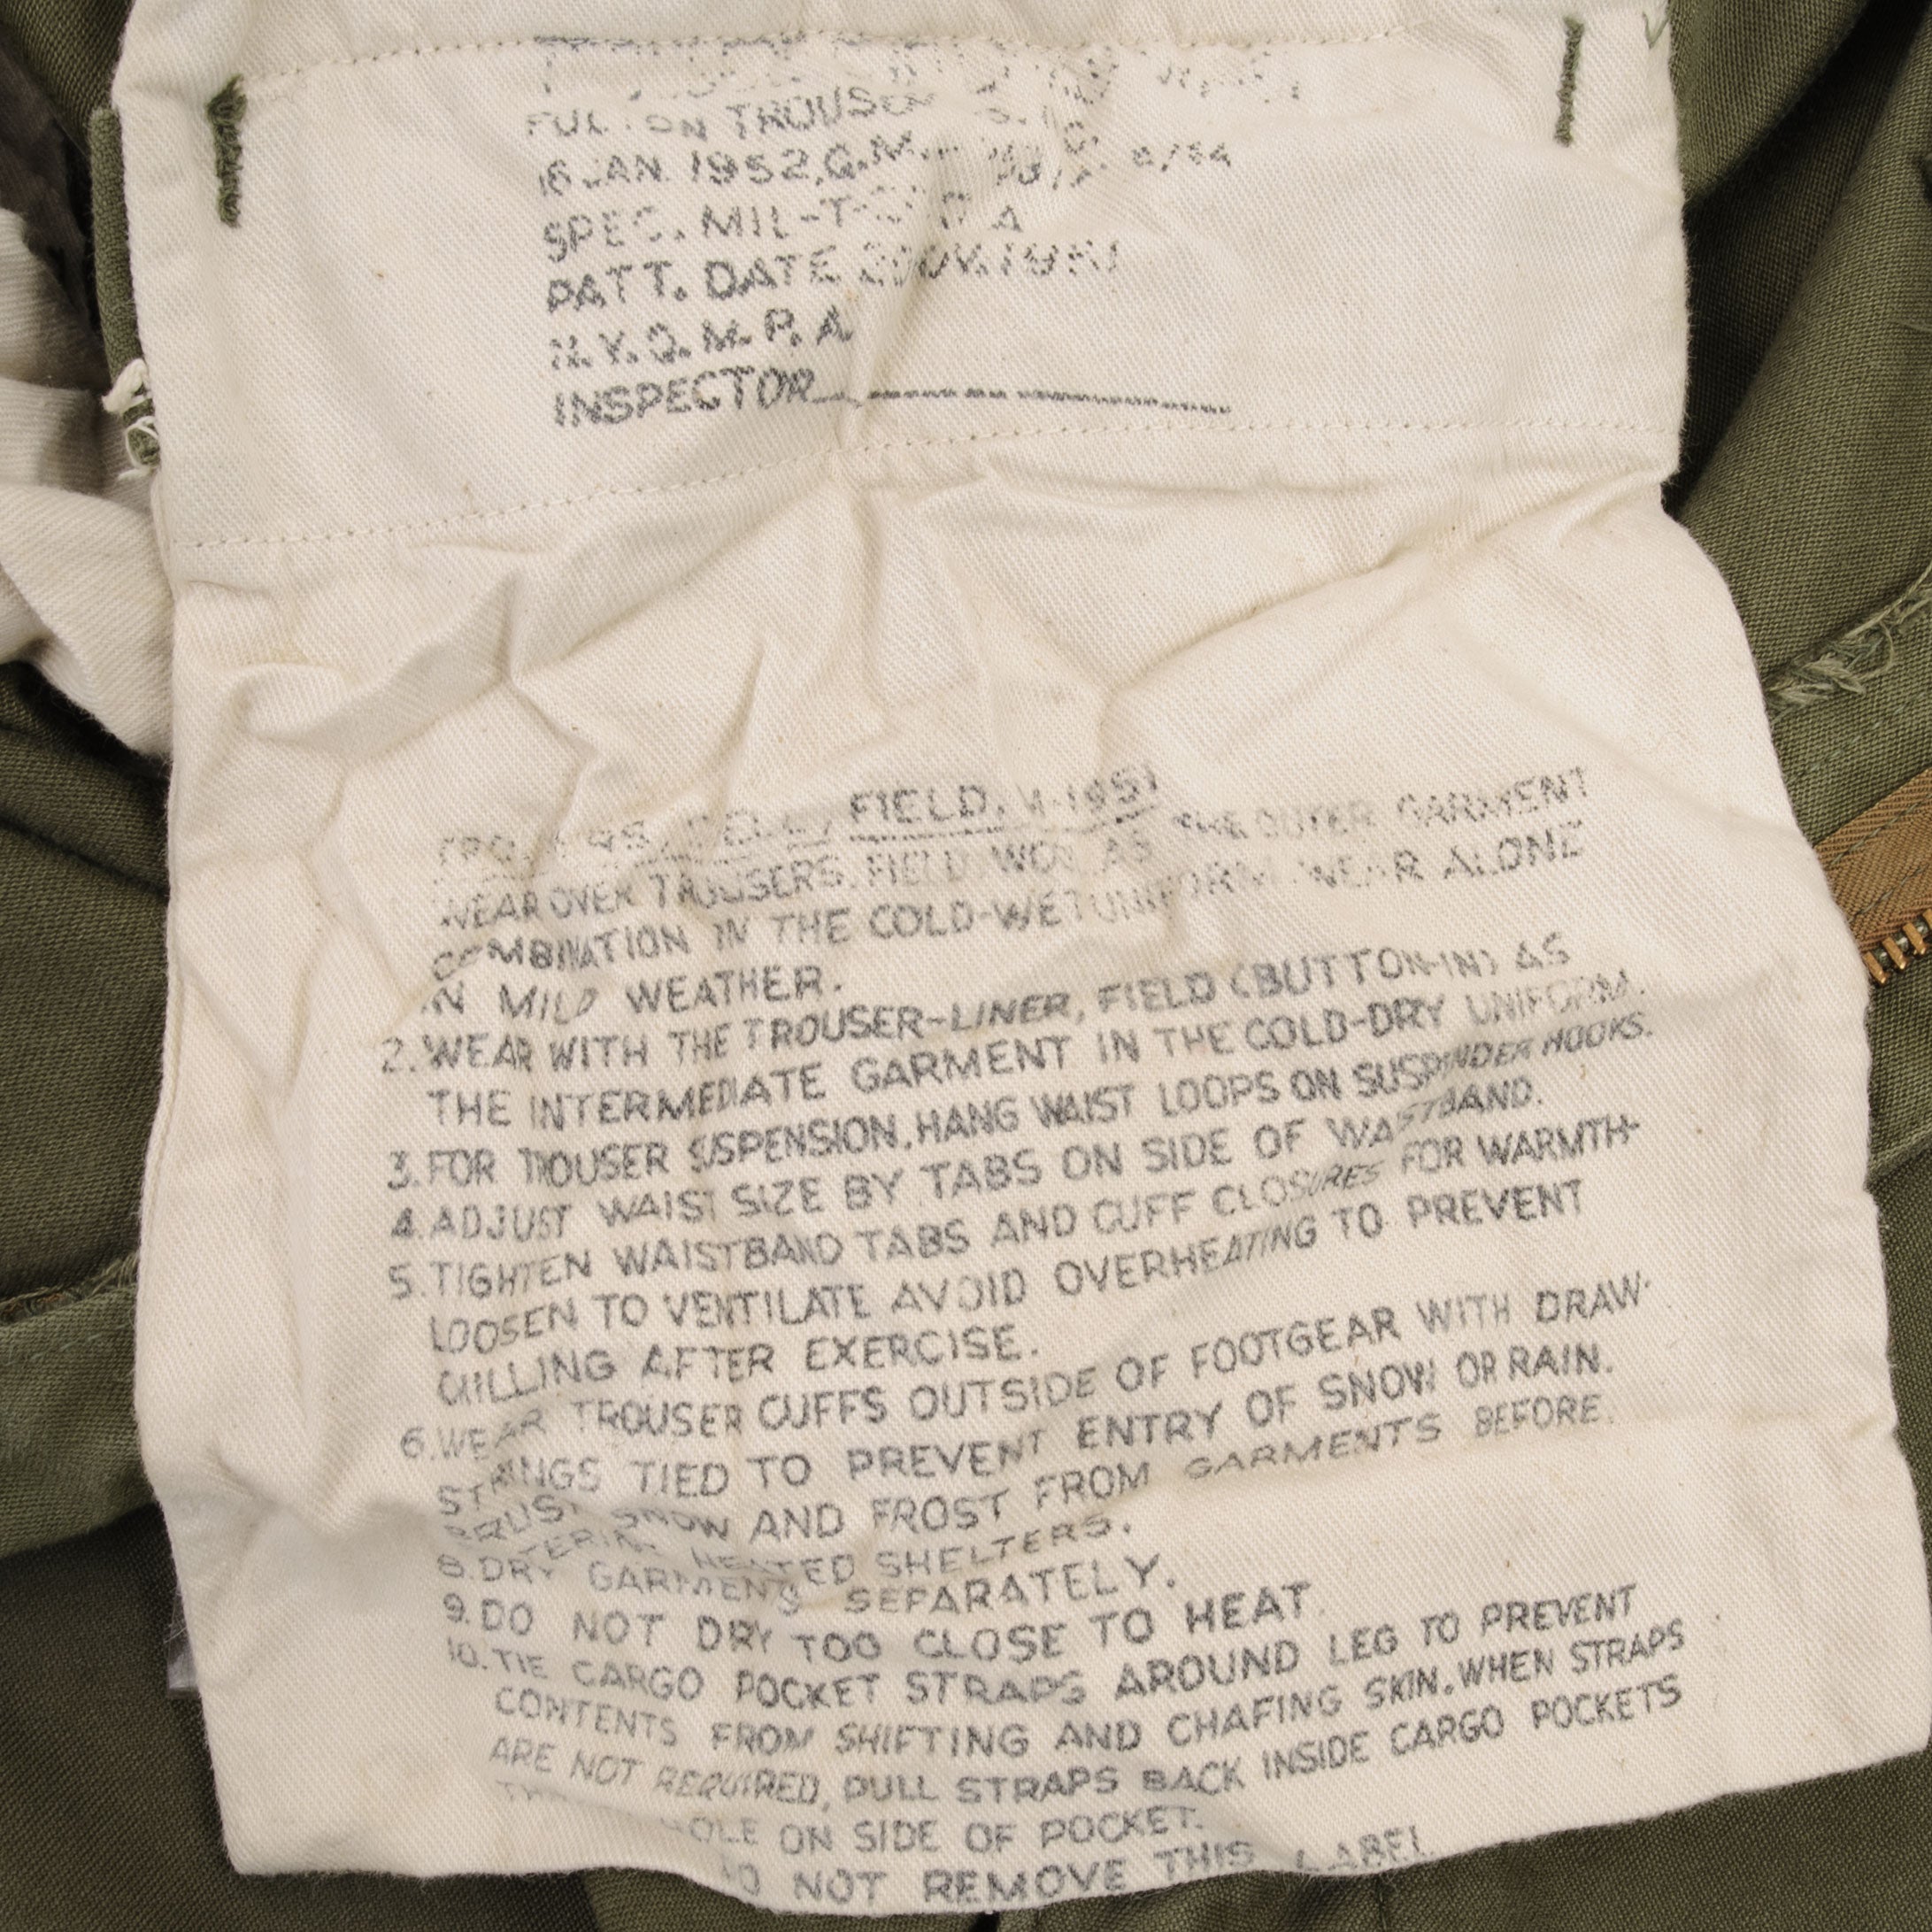 TROUS
16 JAN. 1952, Q.M.
SPEC. MIL-T-
PATT. DATE
N.Y.Q.M.P.A
INSPECTOR
FIELD, M-1951
WEAR OVER TROUSERS, FIELD, AS THE OUTER GARMENT
COMBINATION IN THE COLD-WET UNIFORM. WEAR ALONE
IN MILD WEATHER.
2. WEAR WITH THE TROUSER-LINER, FIELD (BUTTON-IN) AS
THE INTERMEDIATE GARMENT IN THE COLD-DRY UNIFORM.
3. FOR TROUSER SUSPENSION, HANG WAIST LOOPS ON SUSPENDER HOOKS.
4. ADJUST WAIST SIZE BY TABS ON SIDE OF WAISTBAND.
5. TIGHTEN WAISTBAND TABS AND CUFF CLOSURES FOR WARMTH-
LOOSEN TO VENTILATE AVOID OVERHEATING TO PREVENT
CHILLING AFTER EXERCISE.
6. WEAR TROUSER CUFFS OUTSIDE OF FOOTGEAR WITH DRAW-
STRINGS TIED TO PREVENT ENTRY OF SNOW OR RAIN.
BRUSH SNOW AND FROST FROM GARMENTS BEFORE
ENTERING HEATED SHELTERS.
8. DRY GARMENTS SEPARATELY.
9. DO NOT DRY TOO CLOSE TO HEAT
10. TIE CARGO POCKET STRAPS AROUND LEG TO PREVENT
CONTENTS FROM SHIFTING AND CHAFING SKIN. WHEN STRAPS
ARE NOT REQUIRED, PULL STRAPS BACK INSIDE CARGO POCKETS
ON SIDE OF POCKET.
DO NOT REMOVE THIS LABEL